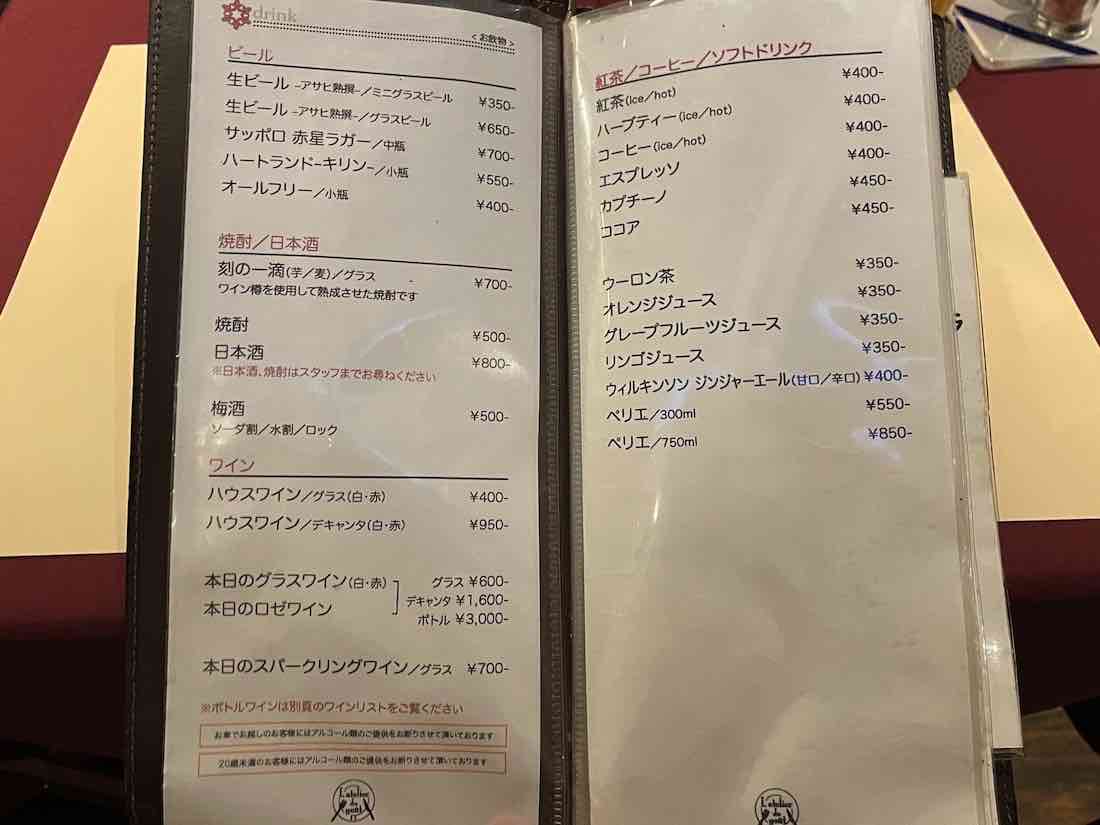 drink
<お飲物>
ビール
生ビール -アサヒ熟撰-/ミニグラスビール ¥350-
生ビール -アサヒ熟撰-/グラスビール ¥650-
サッポロ 赤星ラガー/中瓶 ¥700-
ハートランド-キリン-/小瓶 ¥550-
オールフリー/小瓶 ¥400-
焼酎/日本酒
刻の一滴(芋/麦)/グラス ¥700-
ワイン樽を使用して熟成させた焼酎です
焼酎 ¥500-
日本酒 ¥800-
※日本酒、焼酎はスタッフまでお尋ねください
梅酒 ¥500-
ソーダ割/水割/ロック
ワイン
ハウスワイン/グラス(白・赤) ¥400-
ハウスワイン/デキャンタ(白・赤) ¥950-
本日のグラスワイン(白・赤) グラス ¥600-
デキャンタ ¥1,600-
本日のロゼワイン
ボトル ¥3,000-
本日のスパークリングワイン/グラス ¥700-
※ボトルワインは別頁のワインリストをご覧ください
お車でお越しのお客様にはアルコール類のご提供をお断りさせて頂いております
20歳未満のお客様にはアルコール類のご提供をお断りさせて頂いております
L'atelier du goût
紅茶/コーヒー/ソフトドリンク
紅茶(ice/hot) ¥400-
ハーブティー(ice/hot) ¥400-
コーヒー(ice/hot) ¥400-
エスプレッソ ¥400-
カプチーノ ¥450-
ココア ¥450-
ウーロン茶 ¥350-
オレンジジュース ¥350-
グレープフルーツジュース ¥350-
リンゴジュース ¥350-
ウィルキンソン ジンジャーエール(甘口/辛口) ¥400-
ペリエ/300ml ¥550-
ペリエ/750ml ¥850-
L'atelier du goût